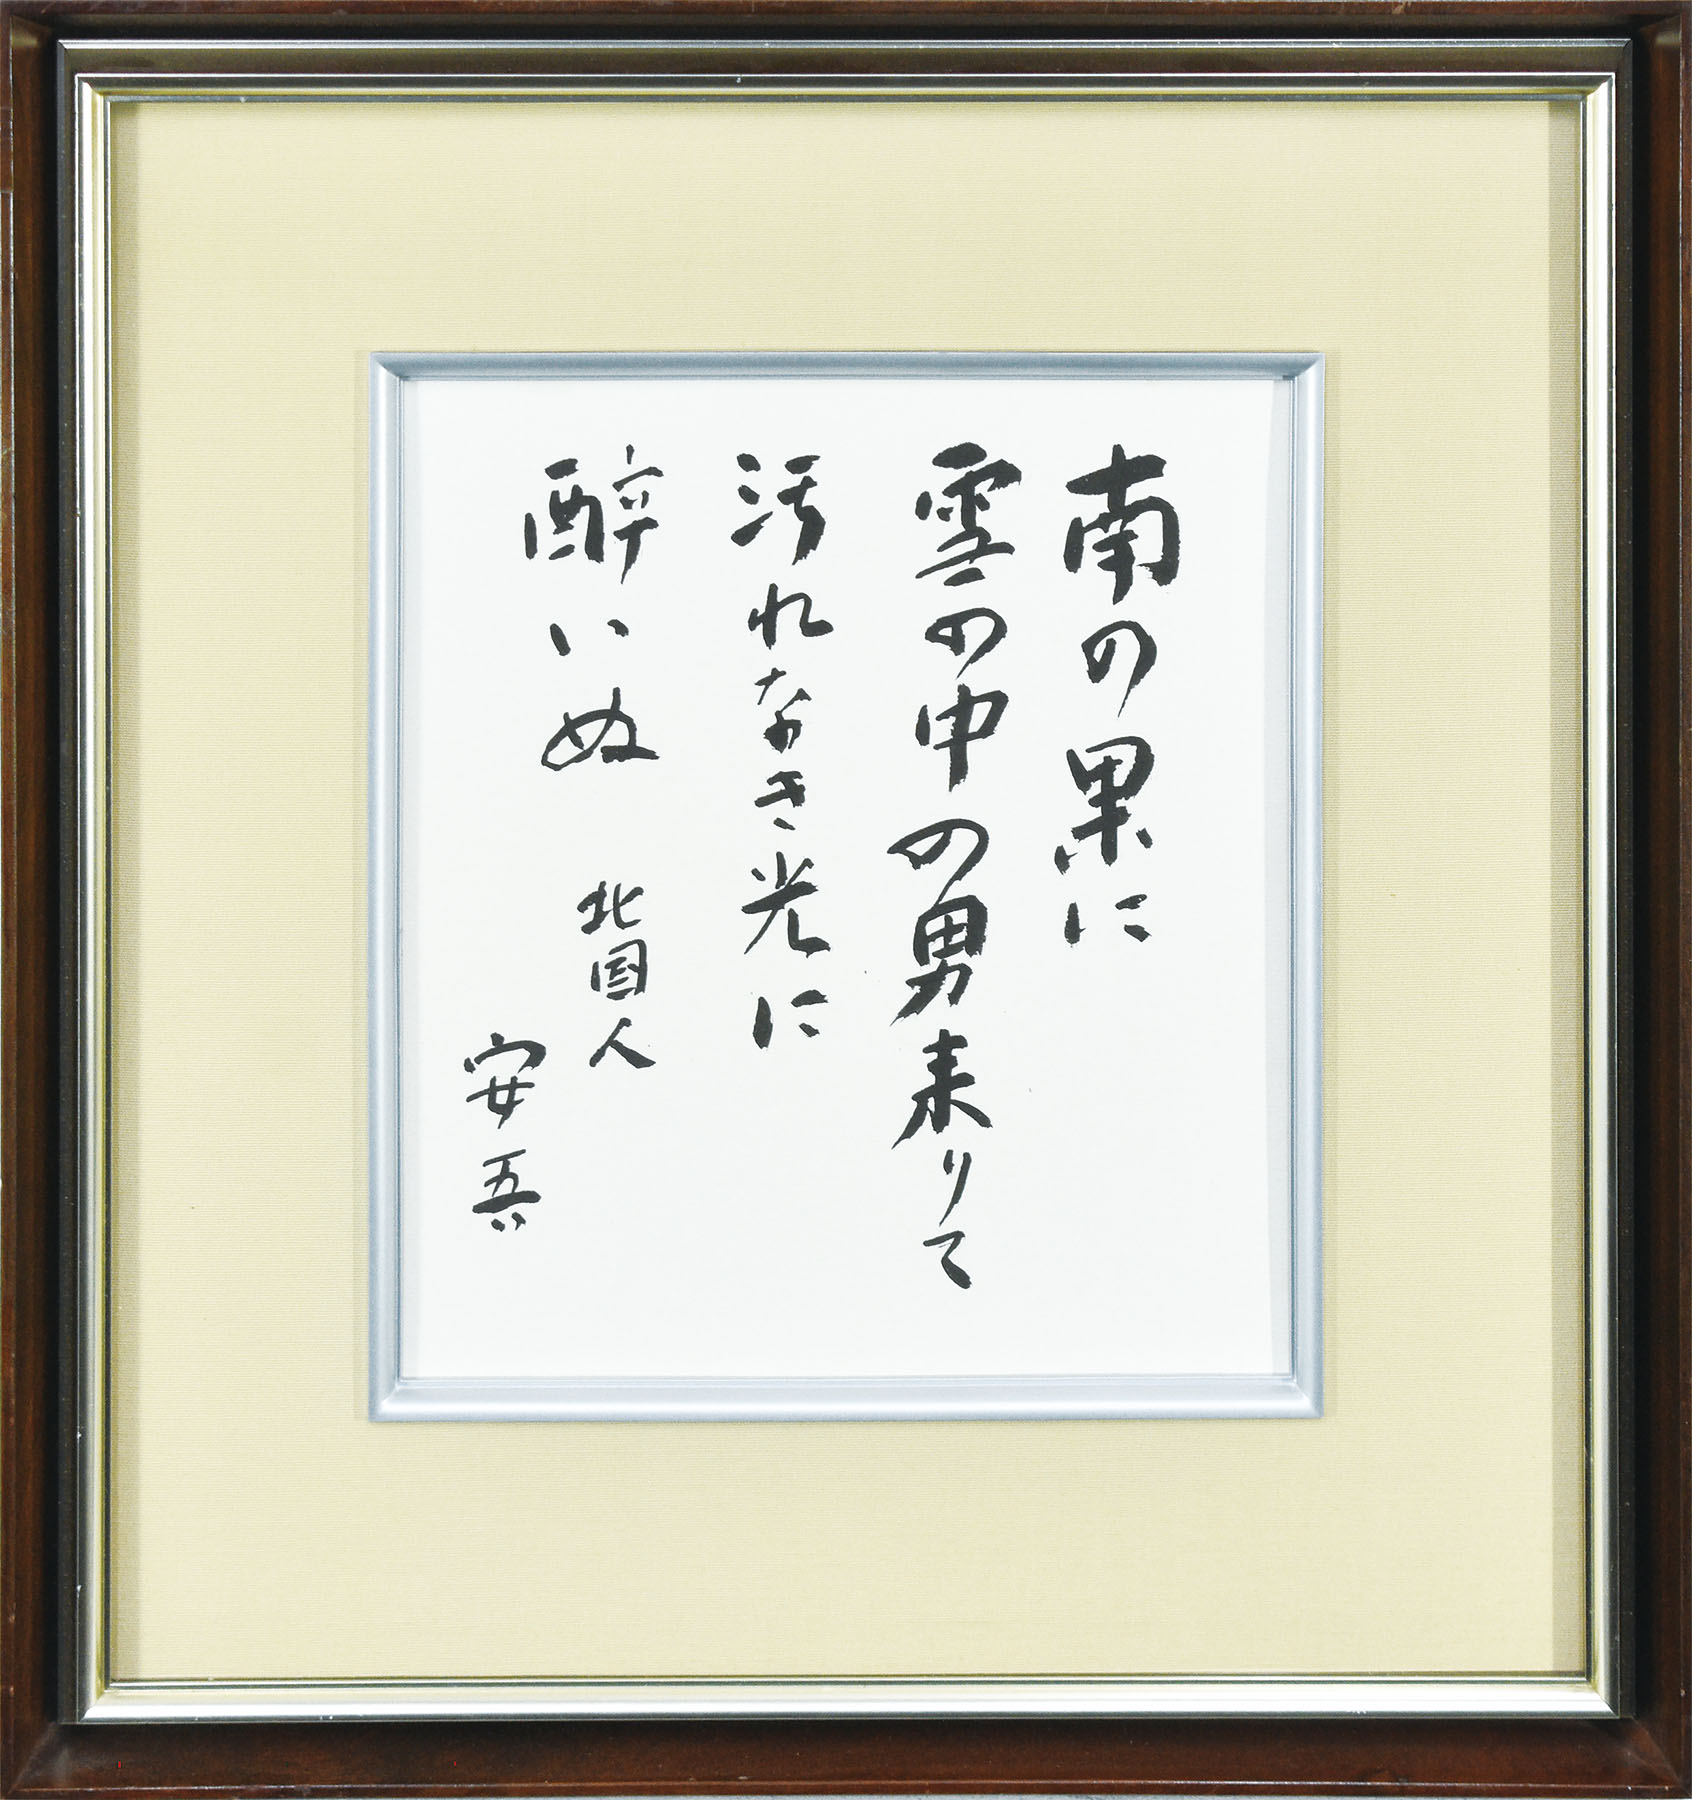 南の果に
雪の中の男来りて
汚れなき光に
酔いぬ
北国人
安吾